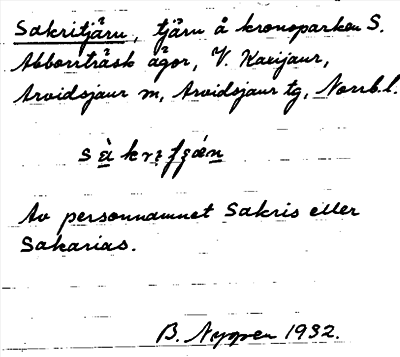 Sakritjärn, tjärn å kronoparken S.
Abborrträsk ägor, V. Kaxijaur,
Arvidsjaur m, Arvidsjaur tg, Norrb.l.
Av personnamnet Sakris eller
Sakarias.
B. Nyman 1932.